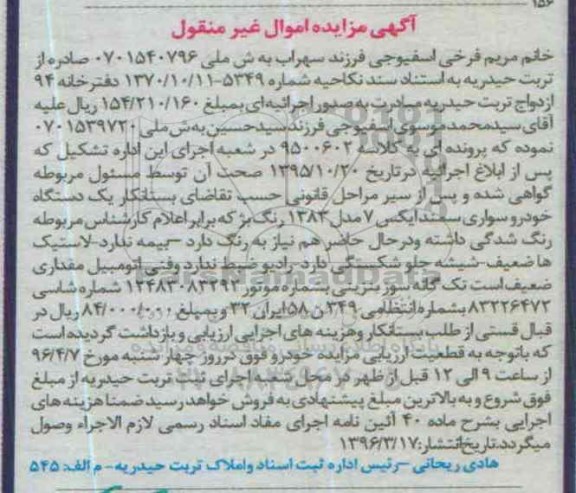 ۱۵۶
آگهی مزایده اموال غیر منقول
خانم مریم فرخی اسفیوجی فرزند سهراب به ش ملی ۰۷۰۱۵۴۰۷۹۶ صادره از
تربت حیدریه به استناد سند نکاحیه شماره ۵۳۴۹-۱۳۷۰/۱۰/۱۱ دفترخانه ۹۴
ازدواج تربت حیدریه مبادرت به صدور اجرائیه ای بمبلغ ۱۵۴/۲۱۰/۱۶۰ ریال علیه
آقای سیدمحمد موسوی اسفیوجی فرزند سیدحسین به ش ملی ۰۷۰۱۵۳۹۷۲۰
نموده که پرونده ای به کلاسه ۹۵۰۰۶۰۲ در شعبه اجرای این اداره تشکیل که
پس از ابلاغ اجرائیه درتاریخ ۱۳۹۵/۱۰/۲۰ صحت آن توسط مسئول مربوطه
گواهی شده و پس از سیر مراحل قانونی حسب تقاضای بستانکار یک دستگاه
خودرو سواری سمند ایکس ۷ مدل ۱۳۸۳ رنگ بژ که برابر اعلام کارشناس مربوطه
رنگ شدگی داشته ودرحال حاضر هم نیاز به رنگ دارد -بیمه ندارد-لاستیک
ها ضعیف-شیشه جلو شکستگی دارد-رادیو ضبط ندارد وفنی اتومبیل مقداری
ضعیف است تک گانه سوز بنزینی بشماره موتور ۱۲۴۸۳۰۸۳۳۹۲ شماره شاسی
۸۳۲۲۶۴۷۲ بشماره انتظامی ۳۴۹ن۵۸ ایران ۳۲ و بمبلغ ۸۴/۰۰۰/۰۰۰ ریال در
قبال قسمتی از طلب بستانکار وهزینه های اجرایی ارزیابی و بازداشت گردیده است
که باتوجه به قطعیت ارزیابی مزایده خودرو فوق در روز چهار شنبه مورخ ۹۶/۴/۷
از ساعت ۹ الی ۱۲ قبل از ظهر در محل شعبه اجرای ثبت تربت حیدریه از مبلغ
فوق شروع و به بالاترین مبلغ پیشنهادی به فروش خواهد رسید ضمنا هزینه های
اجرایی بشرح ماده ۴۰ آئین نامه اجرای مفاد اسناد رسمی لازم الاجراء وصول
میگردد.تاریخ انتشار: ۱۳۹۶/۳/۱۷
هادی ریحانی -رئیس اداره ثبت اسناد واملاک تربت حیدریه- م الف: ۵۴۵